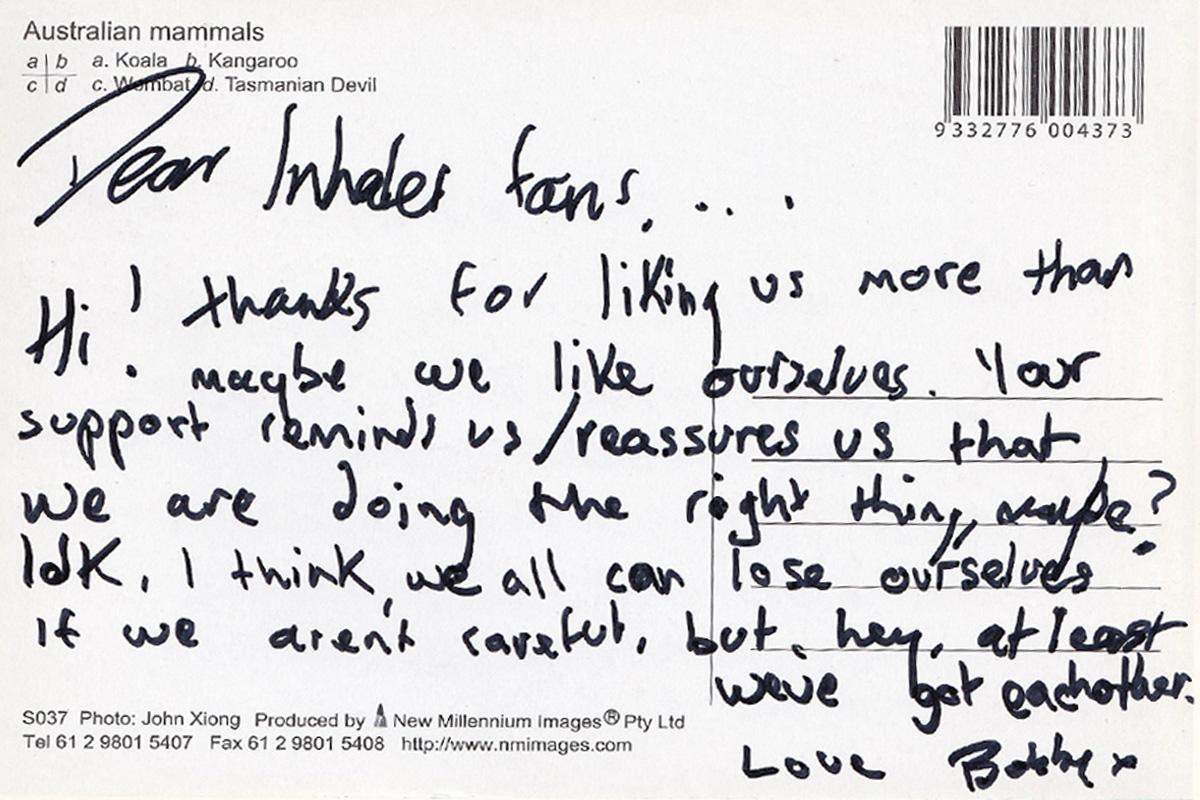 Australian mammals
a b a. Koala b. Kangaroo
c d c. Wombat d. Tasmanian Devil
9 332776 004373
Dear Inhaler fans....
Hi! thanks for liking us more than
maybe we like ourselves. Your
support reminds us/reassures us that
we are doing the right thing, maybe?
Idk, I think, we all can lose ourselves
if we arent careful, but, hey, at least
weve got eachother.
S037 Photo: John Xiong Produced by New Millennium Images® Pty Ltd
Tel 61 2 9801 5407 Fax 61 2 9801 5408 http://www.nmimages.com
Love Bobby x